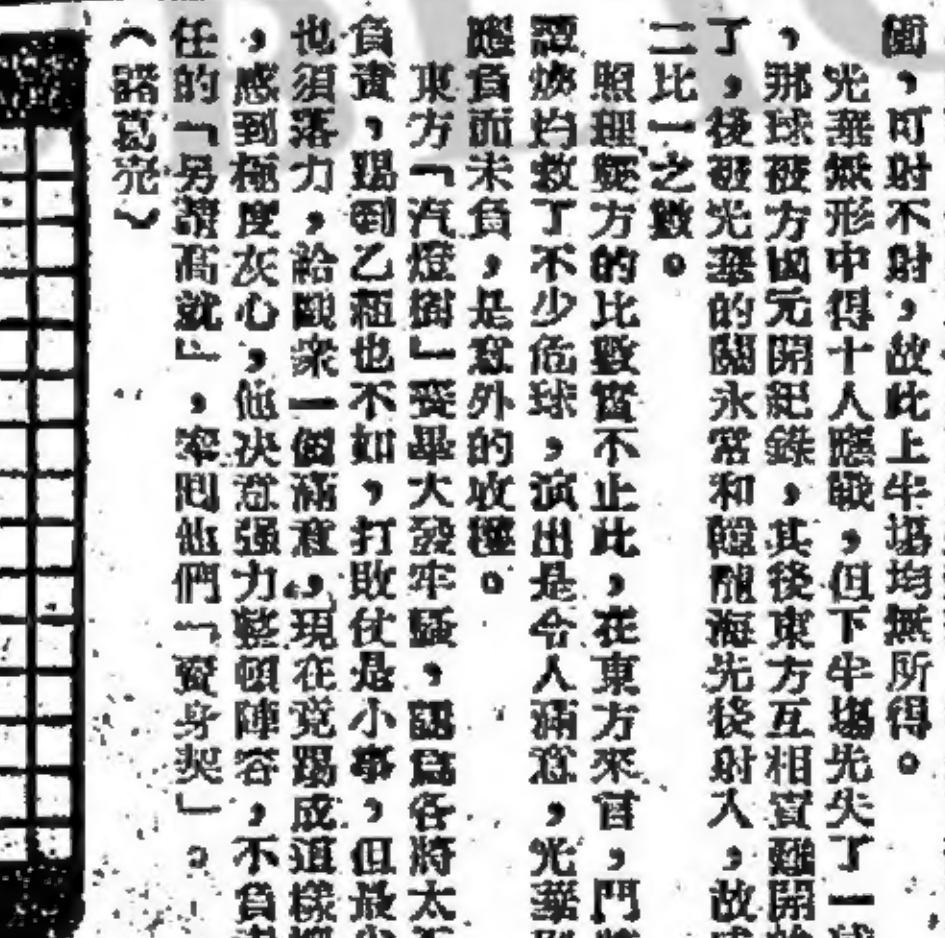 ，可射不射，故此上半塲均無所得。
光華無形中得十人應戰，但下半塲先失了一球
，那球被方國元開紀錄，其後東方互相責難開始
了，後被光華的關永常和龍海先後射入，故
二比一之數。
照理雙方的比數當不止此，在東方來言，門將
譚煥均救了不少危球，演出是令人滿意，光華
應負而未負，是意外的收穫。
東方「汽燈樹」要畢大發牢騷，認爲各將太不
負責，踢到乙組也不如，打敗仗是小事，但最少
也須落力，給觀衆一個滿意，現在竟踢成這樣
，感到極度灰心，他決意强力整頓陣容，不負責
任的「另請高就」，率囘他們「賣身契」。
（諸葛亮）